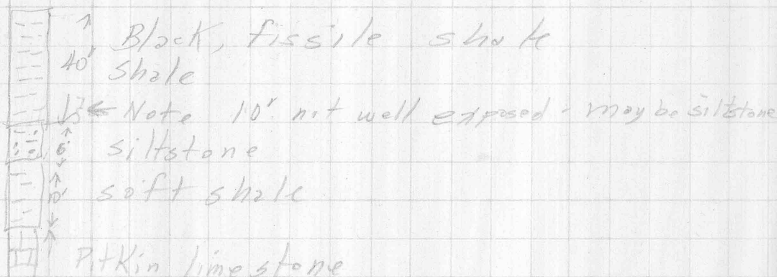 Black, fissile shale
40' shale
10' ← Note 10' not well exposed - may be siltstone
6' siltstone
10' soft shale
Pitkin limestone